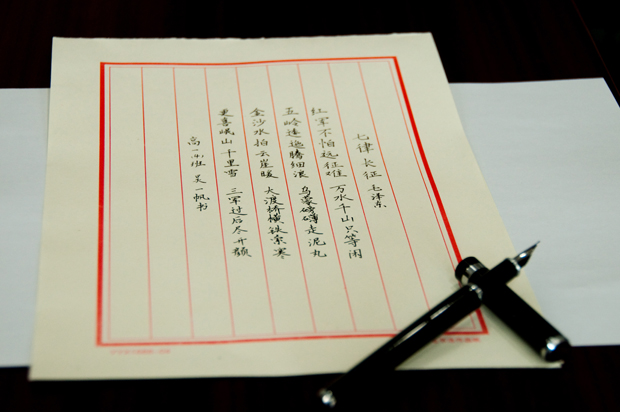 七律 长征 毛泽东
红军不怕远征难 万水千山只等闲
五岭逶迤腾细浪 乌蒙磅礴走泥丸
金沙水拍云崖暖 大渡桥横铁索寒
更喜岷山千里雪 三军过后尽开颜
高一班 吴一帆书